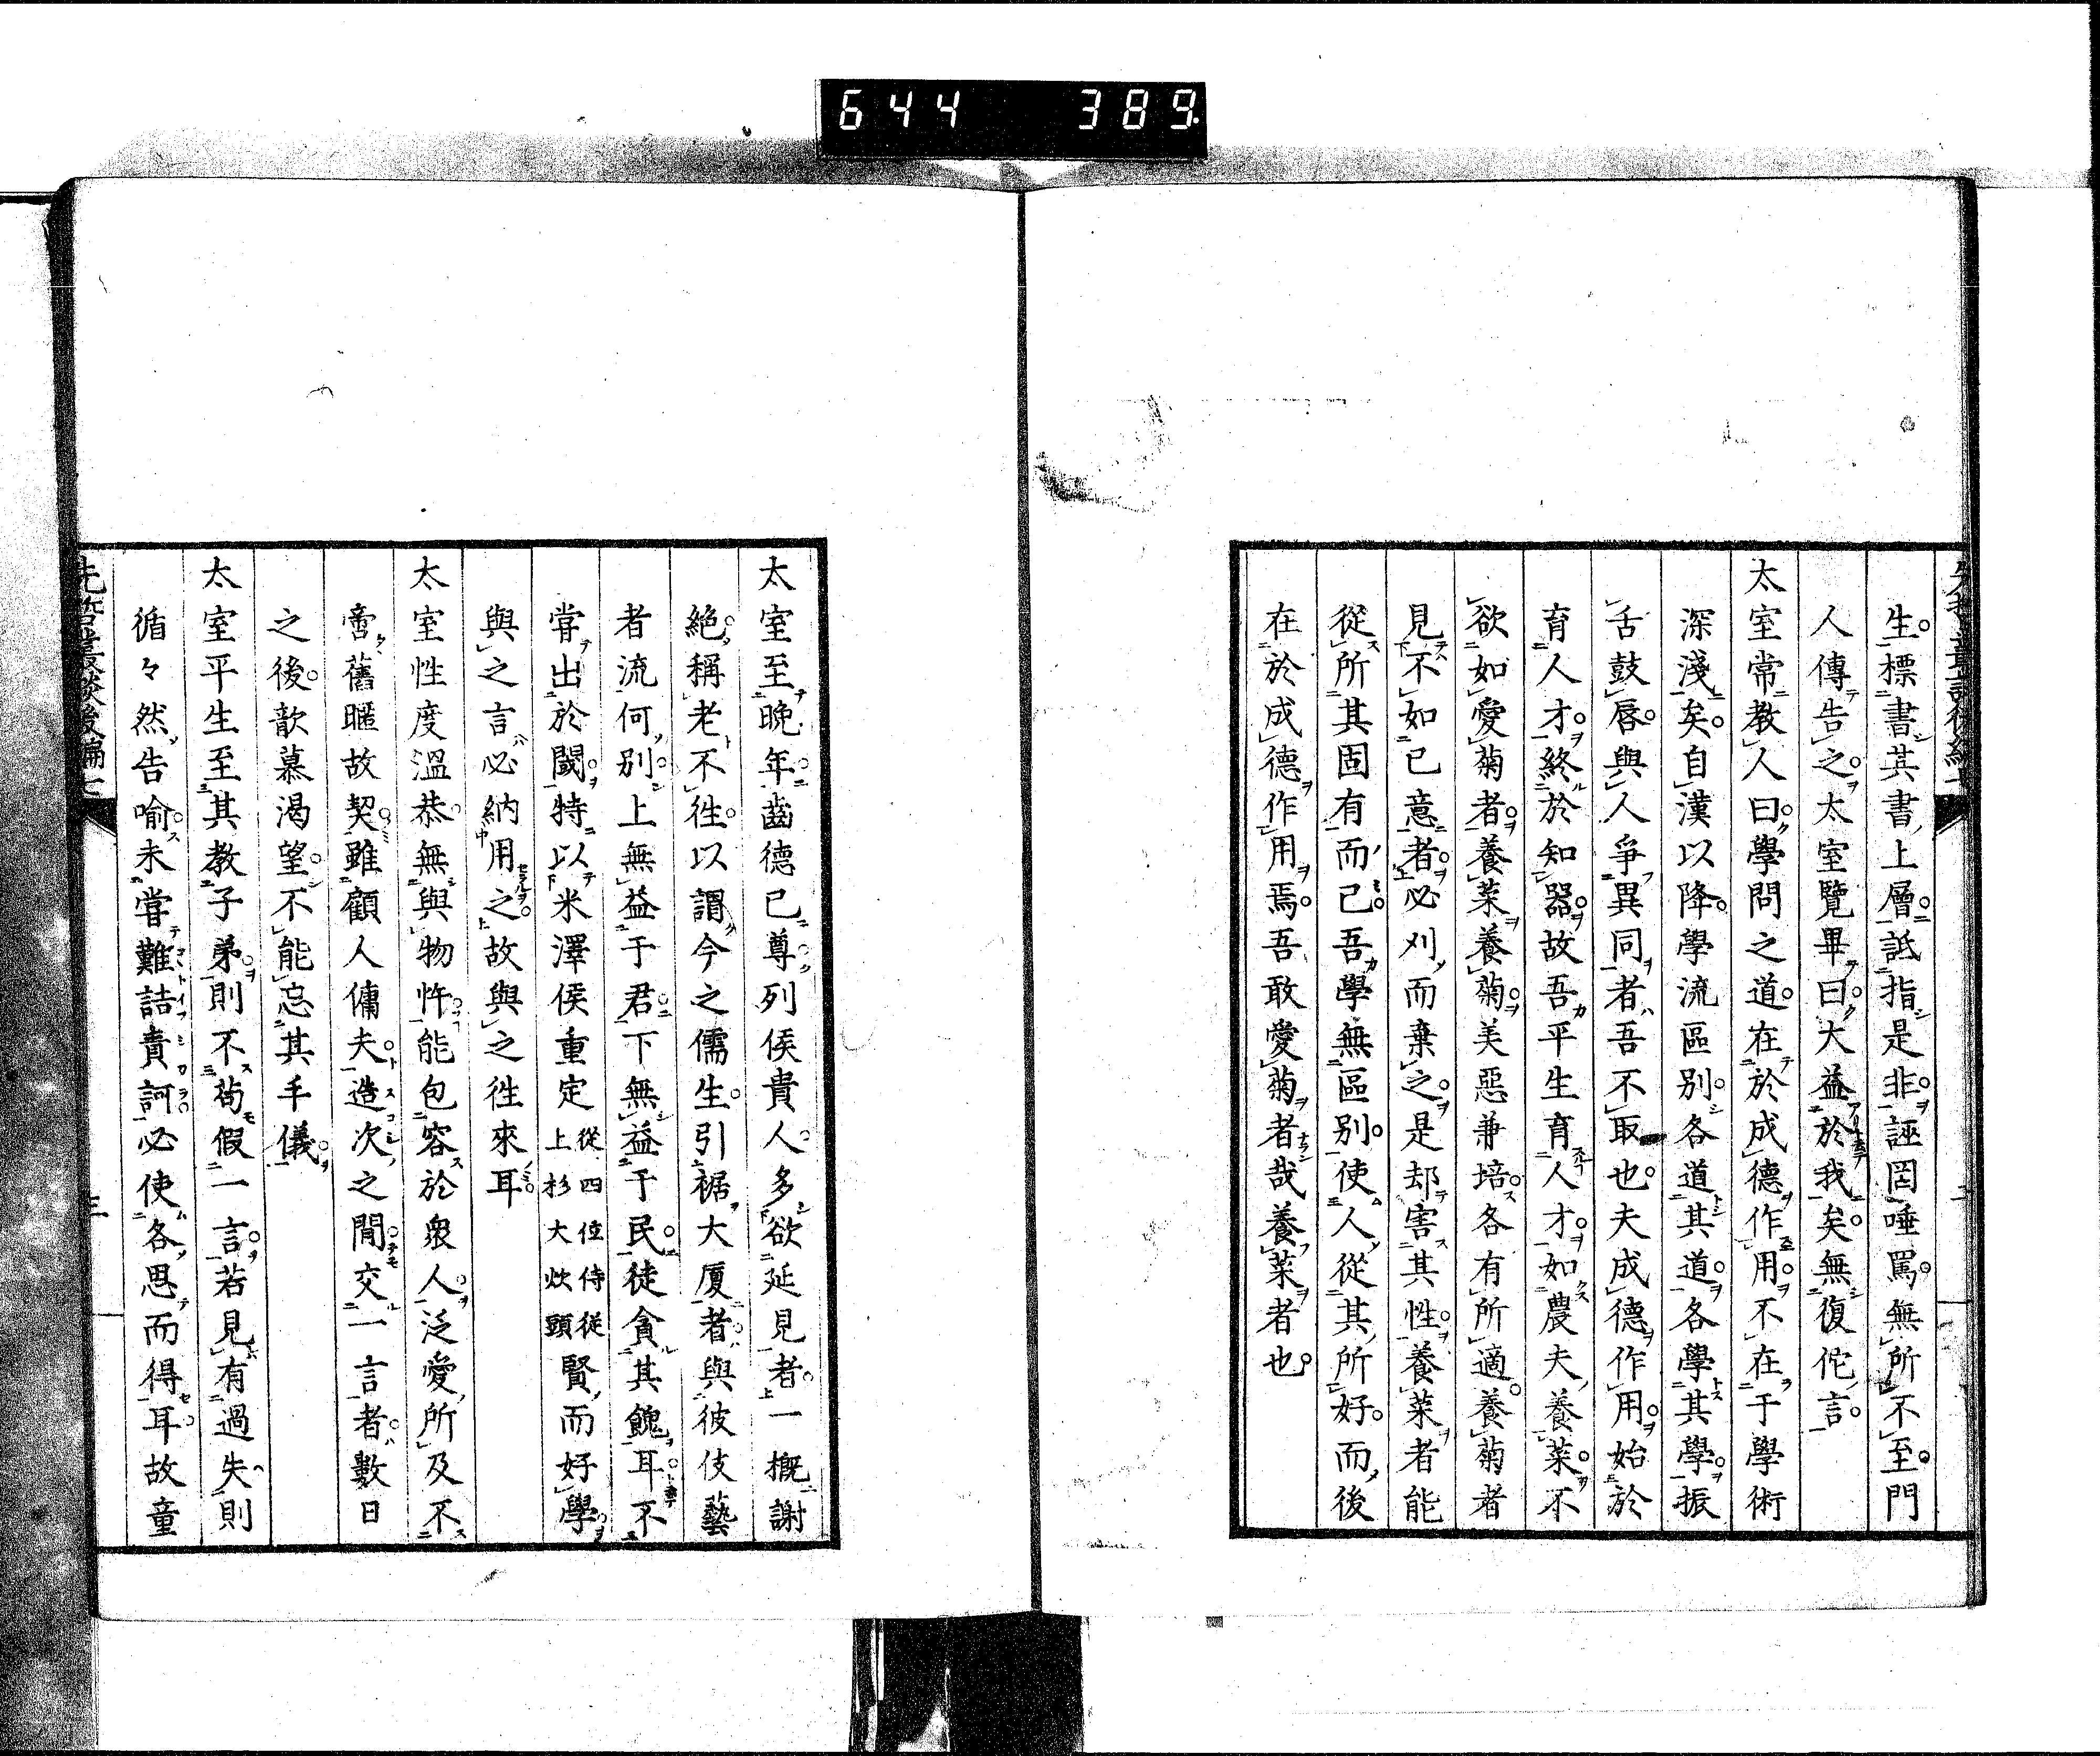 644 389
生標書其書上層詆指是非誣罔唾罵無所不至門
人傳告之太室覽畢曰大益於我矣無復佗言
太室常教人曰學問之道在於成德作用不在于學術
深淺矣自漢以降學流區別各道其道各學其學振
舌鼓唇與人爭異同者吾不取也夫成德作用始於
育人才終於知器故吾平生育人才如農夫養菜不
欲如愛菊者養菜養菊美惡兼培各有所適養菊者
見不如已意者必刈而棄之是却害其性養菜者能
從所其固有而已吾學無區別使人從其所好而後
在於成德作用焉吾敢愛菊者哉養菜者也
太室至晚年齒德已尊列侯貴人多欲延見者一概謝
絕稱老不往以謂今之儒生引裾大厦者與彼伎藝
者流何別上無益于君下無益于民徒貪其餽耳不
嘗出於閾特以米澤侯重定從四位侍從上杉大炊頭賢而好學
與之言必納用之故與之往來耳
太室性度溫恭無與物忤能包容於衆人泛愛所及不
啻舊暱故契雖顧人傭夫造次之間交一言者數日
之後歆慕渴望不能忘其手儀
太室平生至其教子弟則不苟假一言若見有過失則
循々然告喻未嘗難詰責訶必使各思而得耳故童
先哲叢談後編七
三